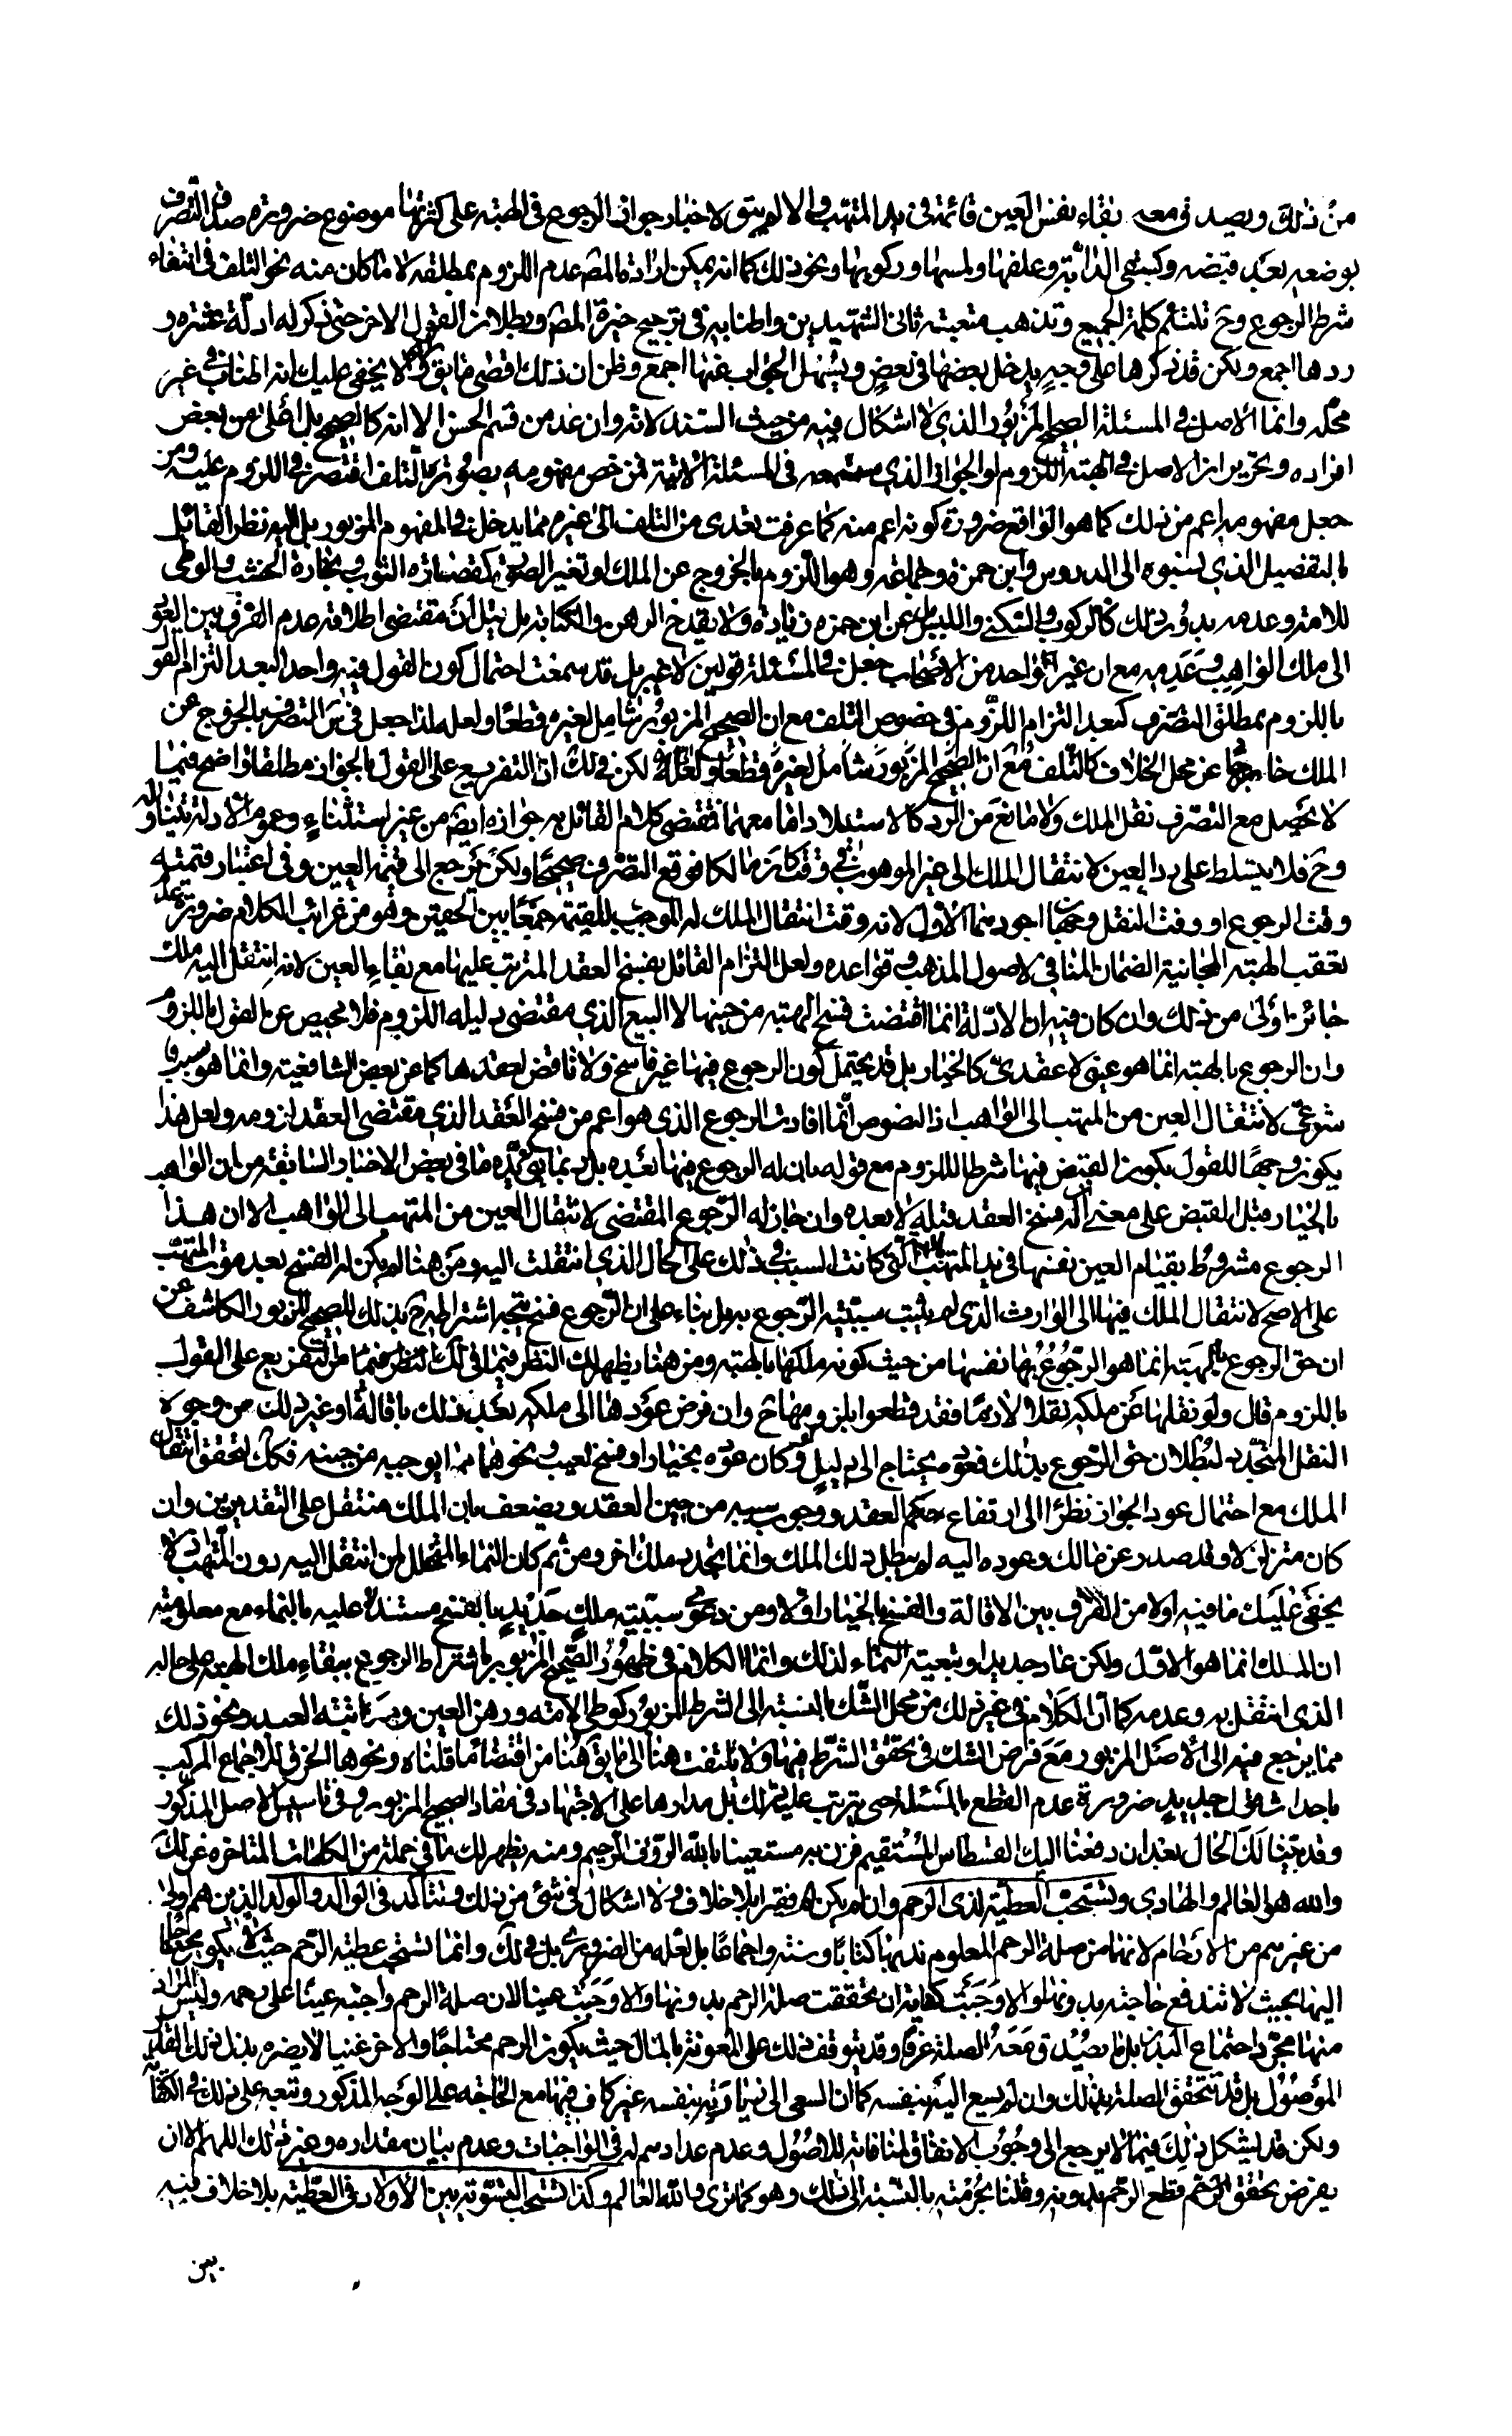 من ذلك ويصدق معه بقاء نفس العين قائمة في يد المتهب والا لم يبق لاخبار جواز الرجوع في الهبة على كثرتها موضوع ضرورة صدق التصرف
بوضعه بعد قبضه وكسقي الدابة وعلفها ولمسها وركوبها ونحو ذلك كما انه يمكن ارادة المصـ عدم اللزوم بمطلقه لا ما كان منه نحو التلف في انتفاء
شرط الرجوع وح تلتئم كلمة الجميع وتذهب متعبة ثاني الشهيدين واطنابه في ترجيح خيرة المصـ وبطلان القول الاخر حتى ذكر له ادلة عشرة و
ردها اجمع ولكن قد ذكرها على وجه يدخل بعضها في بعض ويسهل الجواب عنها اجمع وظن ان ذلك اقصى ما يق ولا يخفى عليك انه اطناب في غير
محله وانما الاصل في المسئلة الصحيح المزبور الذي لا اشكال فيه من حيث السند لانه وان عد من قسم الحسن الا انه كالصحيح بل اعلى من بعض
افراده وتحرير ان الاصل في الهبة اللزوم او الجواز الذي في المسئلة الاتية فمن خص مفهومه بصورة التلف اقتصر في اللزوم عليه ومن
جعل مفهومه اعم من ذلك كما هو الواقع ضرورة كونه اعم منه كما عرفت تعدى من التلف الى غيره مما يدخل في المفهوم المزبور بل اليه نظر القائل
بالتفصيل الذي نسبوه الى الدروس وابن حمزة وجماعة وهو اللزوم بالخروج عن الملك او تغير الصورة كقصارة الثوب ونجارة الخشب والوطي
للامة وعدمه بدون ذلك كالركوب والسكنى واللبس بل عن ابن حمزة زيادة ولا يقدح الرهن والكتابة بل قيل ان مقتضى اطلاقه عدم الفرق بين العود
الى ملك الواهب وعدمه مع ان غير واحد من الاصحاب جعل في المسئلة قولين لا غير بل قد سمعت احتمال كون القول فيه واحدا لبعد التزام القول
باللزوم بمطلق التصرف كبعد التزام اللزوم في خصوص التلف مع ان الصحيح المزبور شامل لغيره قطعا ولعله لذا جعل في س التصرف بالخروج عن
الملك خارجا عن محل الخلاف كالتلف مع ان الصحيح المزبور شامل لغيره قطعا ولعله لكن في لك ان التفريع على القول بالجواز مطلقا واضح فيما
لا يحصل مع التصرف نقل الملك ولا مانع من الرد كالاستيلاد اما معهما فمقتضى كلام القائل به جوازه ايضا من غير استثناء وعموم الادلة يتناوله
وح فلا يتسلط على رد العين لانتقال الملك الى غير الموهوب في وقت كان مالكا فوقع التصرف صحيحا ولكن يرجع الى قيمة العين وفي اعتبار قيمته
وقت الرجوع او وقت النقل وجهان اجودهما الاول لانه وقت انتقال الملك له الموجب للقيمة جمعا بين الحقين وهو من غرائب الكلام ضرورة عدم
تعقب الهبة المجانية الضمان المنافي لاصول المذهب وقواعده ولعل التزام القائل بفسخ العقد المترتب عليها مع بقاء العين لانه انتقل اليه ملك
جائز اولى من ذلك وان كان فيه ان الادلة انما اقتضت فسخ الهبة من حينها لا البيع الذي مقتضى دليله اللزوم فلا محيص عن القول باللزوم
وان الرجوع بالهبة انما هو عيني لا عقدي كالخيار بل قد يحتمل كون الرجوع فيها غير فاسخ ولا ناقض لعقدها كما عن بعض الشافعية وانما هو سبب
شرعي لانتقال العين من المتهب الى الواهب اذ النصوص انما افادت الرجوع الذي هو اعم من فسخ العقد الذي مقتضى العقد لزومه ولعل هذا
يكون وجها للقول بكون القبض فيها شرطا للزوم مع قوله بان له الرجوع فيها بعده بل ربما يؤيده ما في بعض الاخبار السابقة من ان الواهب
بالخيار قبل القبض على معنى ان له فسخ العقد قبله لا بعده وان جاز له الرجوع المقتضى لانتقال العين من المتهب الى الواهب الا ان هذا
الرجوع مشروط بقيام العين نفسها في يد المتهب التي كانت السبب في ذلك على الحال الذي انتقلت اليه ومن هنا لم يكن له الفسخ بعد موت المتهب
على الاصح لانتقال الملك فيها الى الوارث الذي لم يثبت سببية الرجوع به بل بناء على ان الرجوع فسخ يتجه اشتراطه ح بذلك للصحيح المزبور الكاشف عن
ان حق الرجوع بالهبة انما هو الرجوع بها نفسها من حيث كونه ملكها بالهبة ومن هنا يظهر لك النظر فيما في لك من التفريع على القول
باللزوم قال ولو نقلها عن ملكه نقلا لازما فقد قطعوا بلزومها ح وان فرض عودها الى ملكه بعد ذلك باقالة او غير ذلك من وجوه
النقل المتجدد لبطلان حق الرجوع بذلك فعوده يحتاج الى دليل ولو كان عوده بخيار او فسخ لعيب ونحوهما مما يوجبه من حينه فكك لتحقق انتقال
الملك مع احتمال عود الجواز نظرا الى ارتفاع حكم العقد ووجوب سببه من حين العقد ويضعف بان الملك منتقل على التقديرين وان
كان متزلزلا وقد صدر عن مالك وعوده اليه لم يبطل ذلك الملك وانما يجدد ملك اخر ومن ثم كان النماء المتخلل لمن انتقل اليه دون المتهب اذ لا
يخفى عليك ما فيه اولا من الفرق بين الاقالة والفسخ بالخيار اولا ومن دعوى سببية ملك جديد بالفسخ مستندا عليه بالنماء مع معلومية
ان الملك انما هو الاول ولكن عاد جديدا وتبعية النماء لذلك وانما الكلام في ظهور الصحيح المزبور باشتراط الرجوع ببقاء ملك الهبة على حاله
الذي انتقل به وعدمه كما ان الكلام في غير ذلك من محل الشك بالنسبة الى الشرط المزبور كوطي الامة ورهن العين ومكاتبة العبد ونحو ذلك
مما يرجع فيه الى الاصل المزبور مع فرض الشك في تحقق الشرط فيها ولا يلتفت هنا الى ما يق هنا من اقتضاء ما قلناه ونحوها الخرق للاجماع المركب
باحداث قول جديد ضرورة عدم القطع بالمسئلة حتى يترتب عليه ذلك بل مدارها على الاجتهاد في مفاد الصحيح المزبور وفي تاسيس الاصل المذكور
وقد تبين لك الحال بعد ان دفعنا اليك القسطاس المستقيم فزن به مستعينا بالله الرؤف الرحيم ومنه يظهر لك ما في جملة من الكلمات المتاخرة عن لك
والله هو العالم والهادي ويستحب العطية لذي الرحم وان لم يكن فقيرا بلا خلاف ولا اشكال في شئ من ذلك ويتاكد في الوالد والولد الذين هم اولى
من غيرهم من الارحام لانها من صلة الرحم المعلوم ندبها كتابا وسنة واجماعا بل لعله من الضروري بل في لك وانما تستحب عطية الرحم حيث لا يكون محتاجا
اليها بحيث لا تندفع حاجته بدونها والا وجبت كفاية ان تحققت صلة الرحم بدونها والا وجبت عينا لان صلة الرحم واجبة عينا على رحمه وليس المراد
منها مجرد اجتماع البدن بل ما يصدق معه الصلة عرفا وقد يتوقف ذلك على المعونة بالمال حيث يكون الرحم محتاجا والاخر غنيا لا يضره بذل ذلك القدر
الموصول بل قد تتحقق الصلة بذلك وان لم يسع اليه بنفسه كما ان السعي الى زيارته بنفسه غير كاف فيها مع الحاجة على الوجه المذكور وتبعه على ذلك في الكفاية
ولكن قد يشكل ذلك فيما لا يرجع الى وجوب الانفاق لمنافاته للاصول وعدم عدادهم له في الواجبات وعدم بيان مقداره وغير ذلك اللهم الا ان
يفرض تحقق قطع الرحم بدونه وقلنا بحرمته بالنسبة الى ذلك وهو كما ترى والله العالم وكذا تستحب التسوية بين الاولاد في العطية بلا خلاف فيه
بين